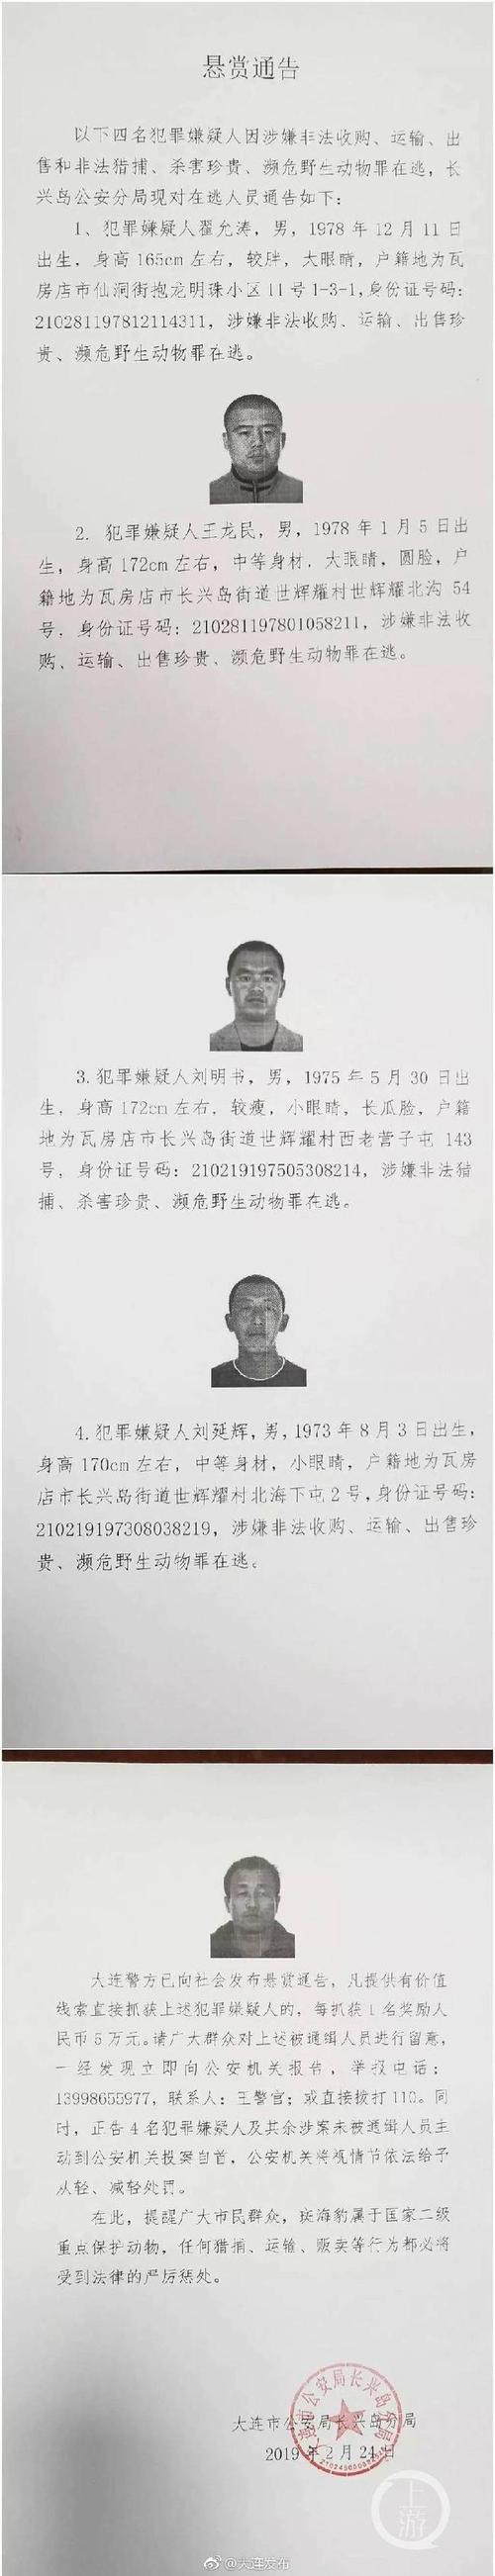 悬赏通告
以下四名犯罪嫌疑人因涉嫌非法收购、运输、出
售和非法猎捕、杀害珍贵、濒危野生动物罪在逃，长
兴岛公安分局现对在逃人员通告如下：
1、犯罪嫌疑人翟允涛，男，1978 年 12 月 11 日
出生，身高 165cm 左右，较胖，大眼睛，户籍地为瓦
房店市仙洞街抱龙明珠小区 11 号 1-3-1，身份证号码：
210281197812114311，涉嫌非法收购、运输、出售珍
贵、濒危野生动物罪在逃。
2. 犯罪嫌疑人王龙民，男，1978 年 1 月 5 日出
生，身高 172cm 左右，中等身材，大眼睛，圆脸，户
籍地为瓦房店市长兴岛街道世辉耀村世辉耀北沟 54
号，身份证号码：210281197801058211，涉嫌非法收
购、运输、出售珍贵、濒危野生动物罪在逃。
3.犯罪嫌疑人刘明书，男，1975 年 5 月 30 日出
生，身高 172cm 左右，较瘦，小眼睛，长瓜脸，户籍
地为瓦房店市长兴岛街道世辉耀村西老营子屯 143
号，身份证号码：210219197505308214，涉嫌非法猎
捕、杀害珍贵、濒危野生动物罪在逃。
4.犯罪嫌疑人刘延辉，男，1973 年 8 月 3 日出生，
身高 170cm 左右，中等身材，小眼睛，户籍地为瓦房
店市长兴岛街道世辉耀村北海下屯 2 号，身份证号码：
210219197308038219，涉嫌非法收购、运输、出售珍
贵、濒危野生动物罪在逃。
大连警方已向社会发布悬赏通告，凡提供有价值
线索直接抓获上述犯罪嫌疑人的，每抓获 1 名奖励人
民币 5 万元。请广大群众对上述被通缉人员进行留意，
一经发现立即向公安机关报告，举报电话：
13998655977，联系人：王警官；或直接拨打 110。同
时，正告 4 名犯罪嫌疑人及其余涉案未被通缉人员主
动到公安机关投案自首，公安机关将视情节依法给予
从轻、减轻处罚。
在此，提醒广大市民群众，斑海豹属于国家二级
重点保护动物，任何猎捕、运输、贩卖等行为都必将
受到法律的严厉惩处。
大连市公安局长兴岛分局
2019 年 2 月 24 日
大连市公安局长兴岛分局
上游
@大连发布